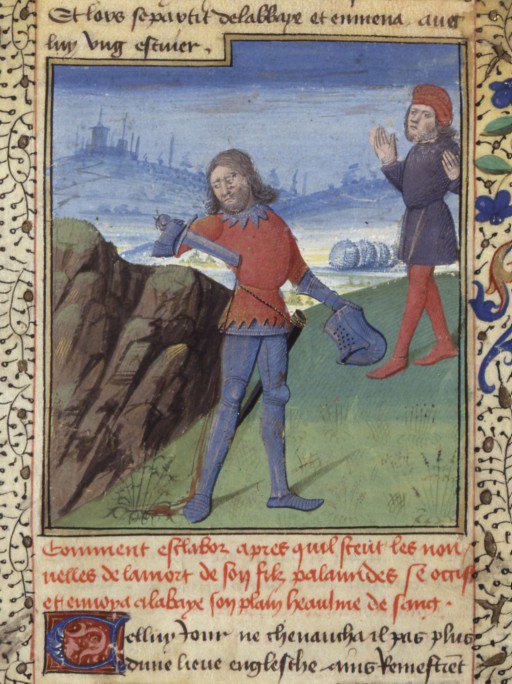 Et lors se partit de labbaye et enmena avec
luy ung escuier .
Comment esclabor apres quil sceut les nou
uelles de la mort de son filz palamides se occist
et enuoya a labaye son plain heaulme de sang .
Celluy Jour ne cheuaucha il pas plus
dune lieue englesche ains remestrent